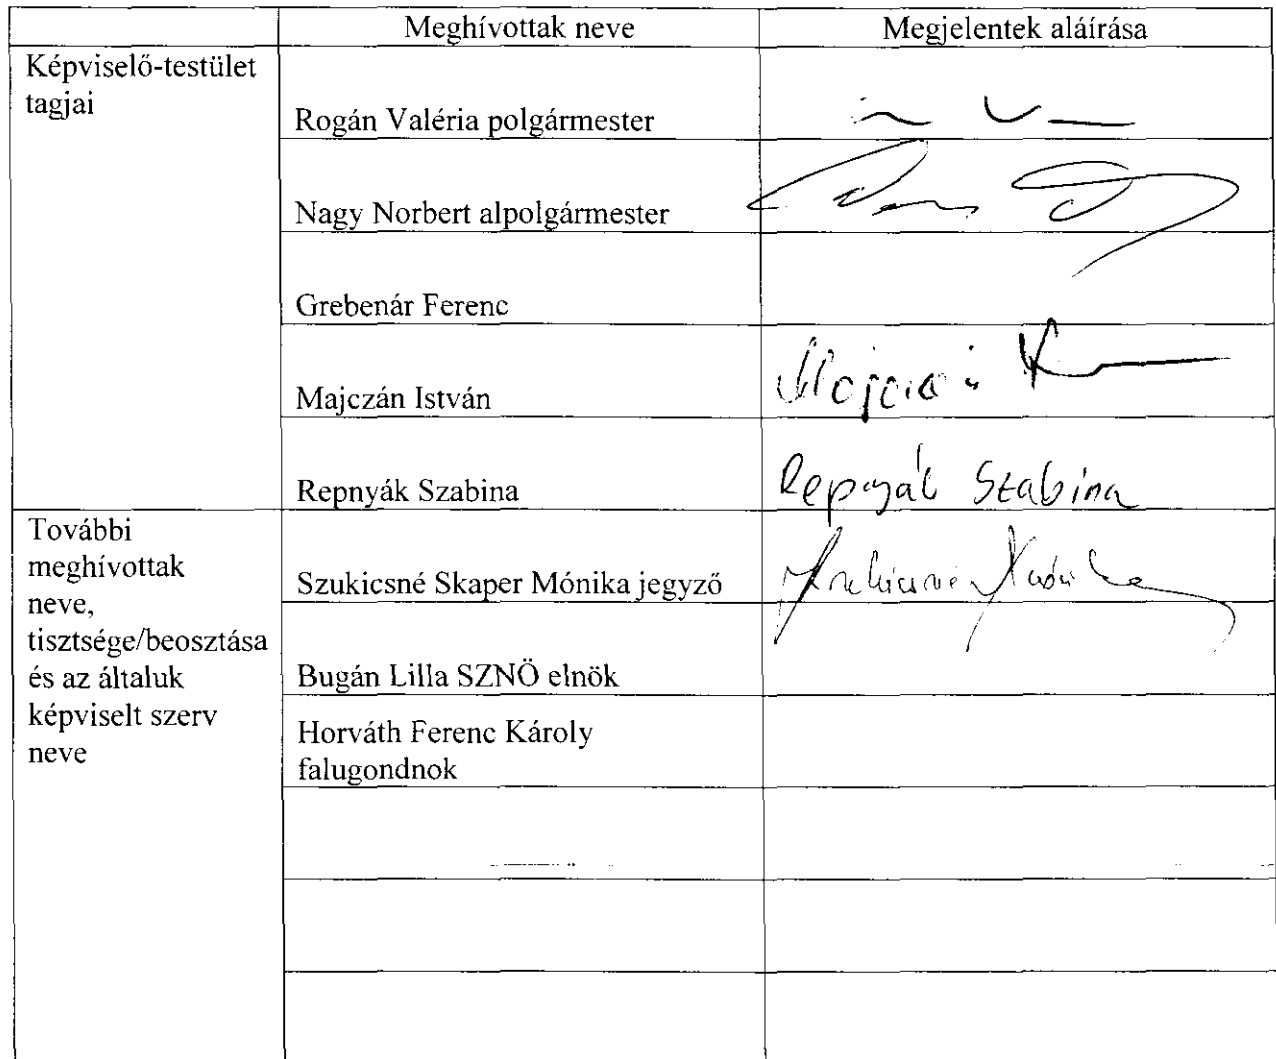 Meghívottak neve
Megjelentek aláírása
Képviselő-testület
tagjai
Rogán Valéria polgármester
Nagy Norbert alpolgármester
Grebenár Ferenc
Majczán István
Repnyák Szabina
Repnyák Szabina
További
meghívottak
neve,
tisztsége/beosztása
és az általuk
képviselt szerv
neve
Szukicsné Skaper Mónika jegyző
Bugán Lilla SZNÖ elnök
Horváth Ferenc Károly
falugondnok